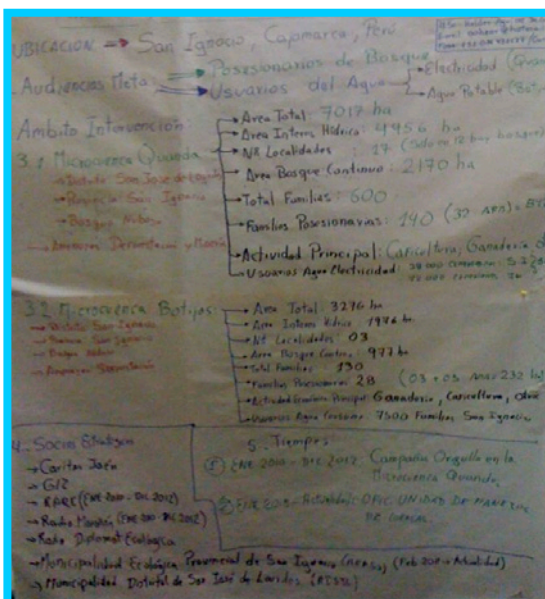 UBICACION → San Ignacio, Cajamarca, Perú
Audiencias Meta: Posesionarios de Bosque
Usuarios del Agua → Electricidad
Agua Potable
Ambito Intervención:
3.1 Microcuenca Quanda
→ Distrito San José de
→ Provincia San Ignacio
→ Bosque
→ Amenazas Deforestación y
→ Area Total: 7017 ha
→ Area Interes Hídrico: 4956 ha
→ NR Localidades: 17 (Solo en 12 hay bosque)
→ Area Bosque Continuo: 2170 ha
→ Total Familias: 600
→ Familias Posesionarias: 140
→ Actividad Principal: Caficultura, Ganadería
→ Usuarios Agua Electricidad:
3.2 Microcuenca Botijas:
→ Distrito San Ignacio
→ Provincia San Ignacio
→ Bosque
→ Amenazas Deforestación
→ Area Total: 3276 ha
→ Area Interes Hídrico: 1976 ha
→ Nº Localidades: 03
→ Area Bosque Continuo: 977 ha
→ Total Familias: 130
→ Familias Posesionarias 28
→ Actividad Económica Principal: Ganadería, Caficultura,
→ Usuarios Agua Consumo: 7500 Familias San Ignacio
4. Socios Estratégicos
→ Caritas Jaén
→ GIZ
→ RARE (ENE 2010 - DIC 2012)
→ Radio Marañón (ENE 2010 - DIC 2012)
→ Radio Diplomat Ecológica
→ Municipalidad Ecológica Provincial de San Ignacio (Feb 2011 → Actualidad)
→ Municipalidad Distrital de San José de Lourdes
5. Tiempos:
① ENE 2010 - DIC 2012: Campaña Orgullo en la
Microcuenca Quanda.
② ENE 2013 - Actualidad: OFIC. UNIDAD DE MANEJO
DE CUENCAS